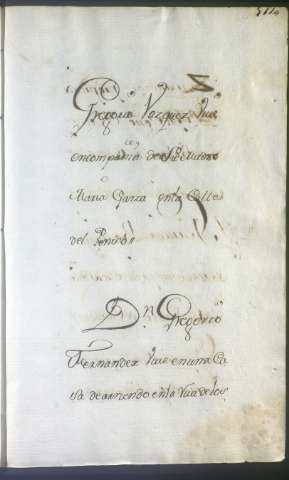 Gregorio Vazquez Vive
en compañia de
Maria Garza en la Calle
del
Dn Gregorio
Fernandez Vive en una Ca
sa de arriendo en la Villa de los